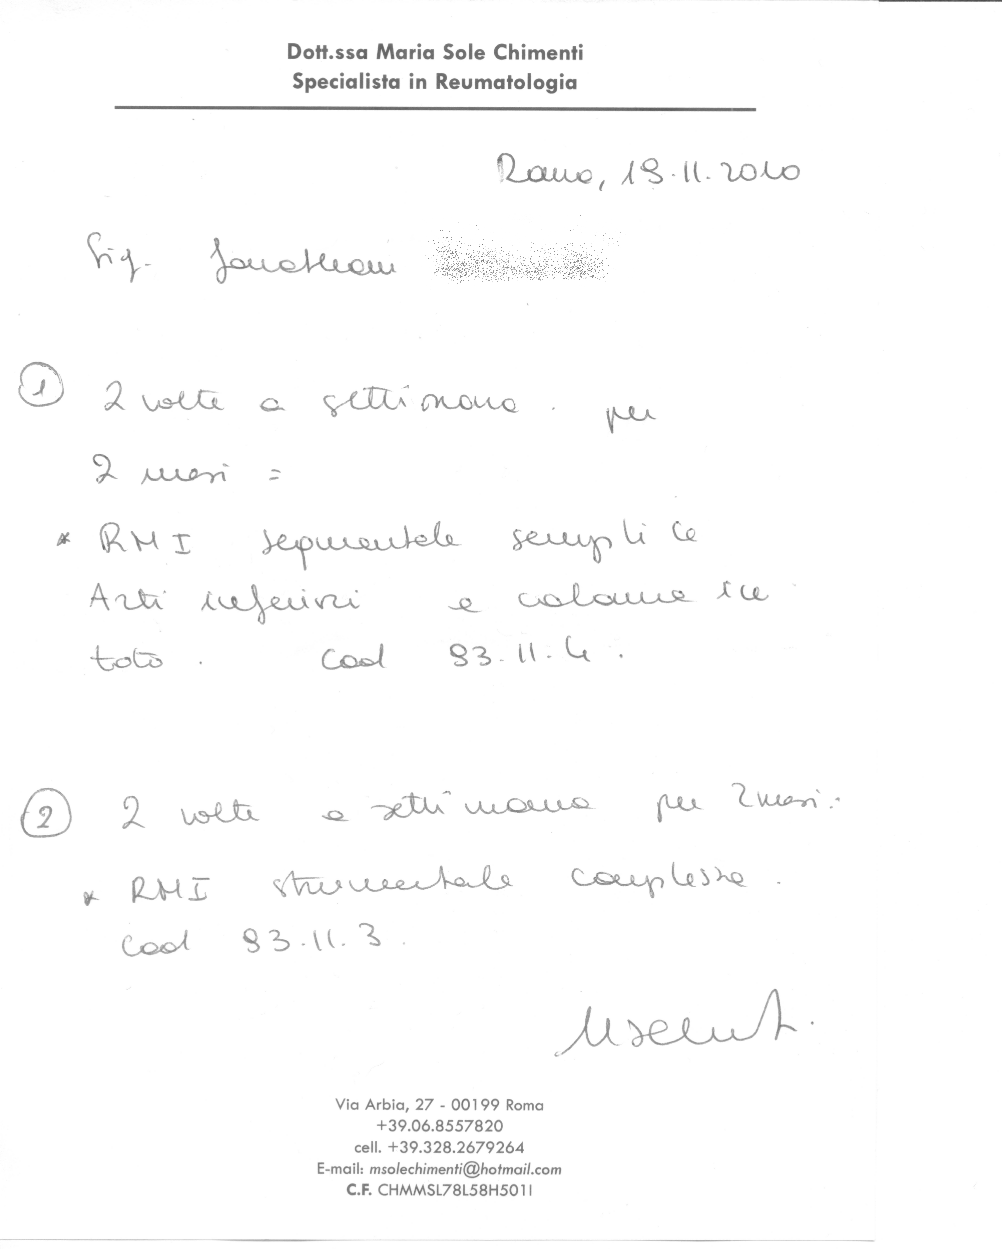 Dott.ssa Maria Sole Chimenti
Specialista in Reumatologia
Roma, 19.11.2010
Sig. Jonathan
1 2 volte a settimana . per
2 mesi =
* RMI segmentale semplice
Arti inferiori e colonna in
toto . cod 93.11.4 .
2 2 volte a settimana per 2 mesi :
* RMI strumentale complessa .
cod 93.11.3 .
Via Arbia, 27 - 00199 Roma
+39.06.8557820
cell. +39.328.2679264
E-mail: msolechimenti@hotmail.com
C.F. CHMMSL78L58H501I